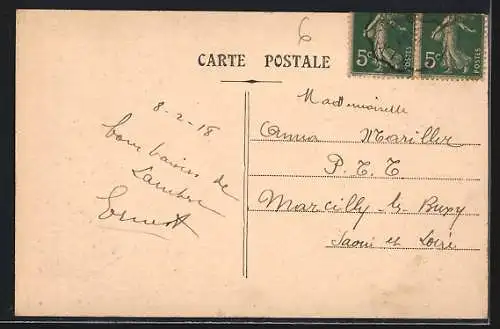 6
CARTE POSTALE
5c
5c
POSTES
8-2-18
bons baisers de
Ernest
Mademoiselle
Anna Mariller
P.T.T
Marcilly-ls Buxy
Saone et Loire